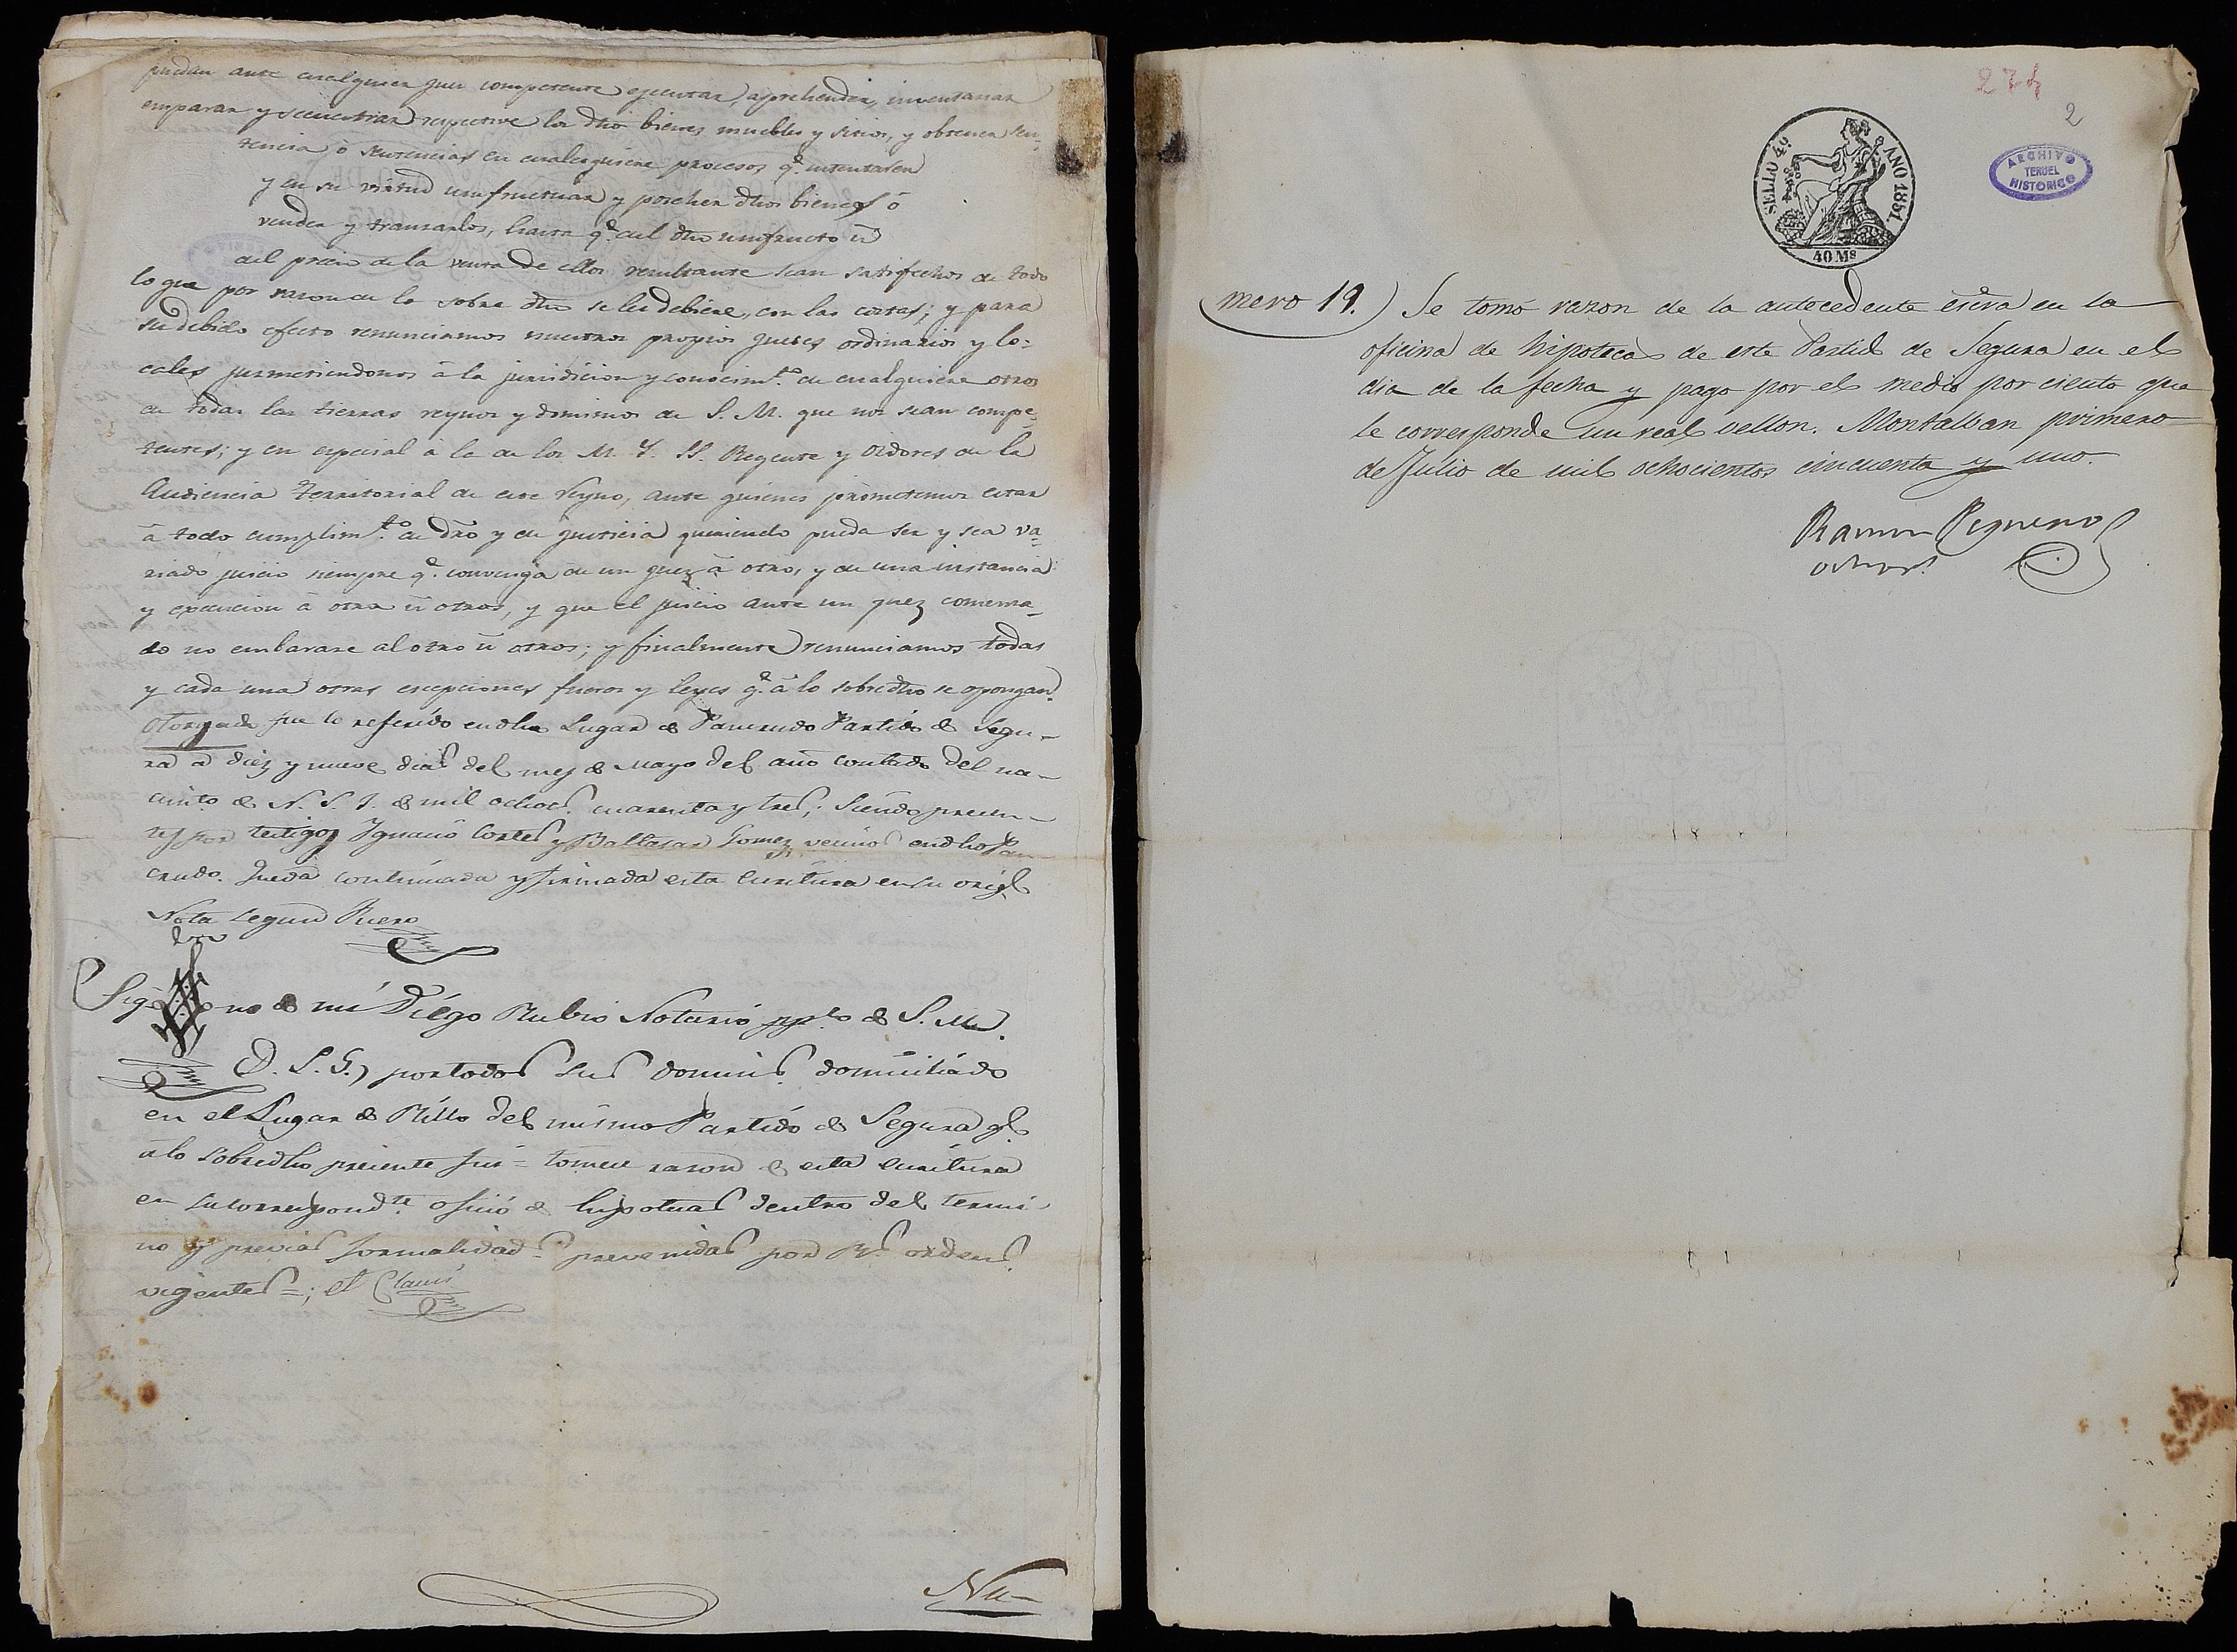 puedan ante cualquier juez competente ejecutar, aprehender, inventariar
emparar y secuestrar respective los dhos bienes muebles y sitios, y obtener sen-
tencia ò sentencias en cualesquiere procesos q.e intentasen
y en su virtud usufructuar y poseher dhos bienes ó
vender y tranzarlos, hasta q.e del dho usufructo ù
del precio de la venta de ellos resultante sean satisfechos de todo
lo que por razon de lo sobre dho se les debiere, con las costas; y para
su debido efecto renunciamos nuestros propios jueces ordinarios y lo-
cales jusmetiendonos á la jurisdicion y conocim.to de cualquiere otros
de todas las tierras reynos y dominios de S. M. que nos sean compe-
tentes; y en especial à la de los M. Y. SS. Regente y Oidores de la
Audiencia Territorial de este Reyno, ante quienes prometemos estar
á todo cumplim.to de dro y de justicia queriendo pueda ser y sea va-
riado juicio siempre q.e convenga de un juez á otro, y de una instancia
y execucion á otra ù otros, y que el juicio ante un juez comenza-
do no embarace al otro ù otros; y finalmente renunciamos todas
y cada una otras excepciones fueros y leyes q.e á lo sobredho se opongan.
Otorgado fue lo referido en dho Lugar de Pancrudo Partido de Segu-
ra a diez y nueve dias del mes de Mayo del año contado del na-
cimto de N. S. J. de mil ochocs. cuarenta y tres; siendo presen-
tes por testigos Ignacio Cortes y Baltasar Gomez vecinos en dho Pan-
crudo. Queda continuada y firmada esta Escritura en su origl
Nota segun Fuero
Sig no de mi Diego Rubio Notario ppco de S. M.
(D. L. G.) por todos sus domins. domiciliado
en el Lugar de Rillo del mismo Partido de Segura q.e
a lo sobredho presente fui = tomese razon de esta escritura
en su correspond.te oficio de hipotecas dentro del termi-
no y previas formalidads prevenidas por Rs. ordens.
vigentes =; et Clausi
Nu-
27
2
SELLO 4º
AÑO 1851
40 Ms
ARCHIVO
TERUEL
HISTORICO
mero 19.) Se tomó razon de la antecedente escra en la
oficina de hipotecas de este Partido de Segura en el
dia de la fecha y pago por el medio por ciento que
le corresponde un real vellon. Montalban primero
de Julio de mil ochocientos cincuenta y uno.
Ramon